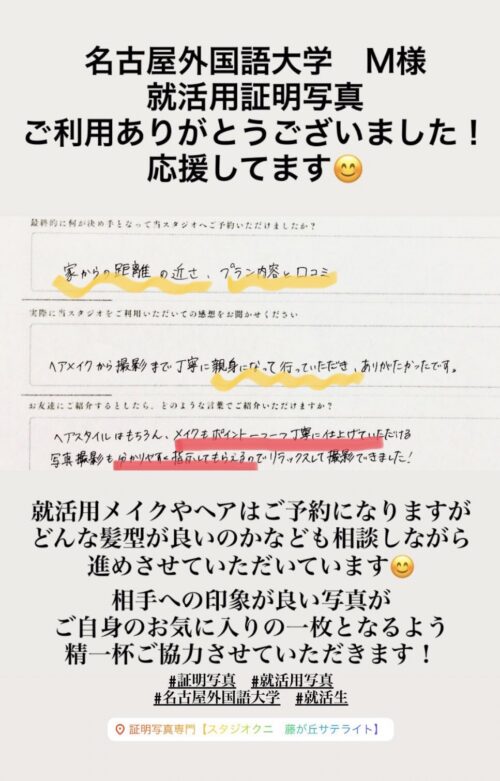 名古屋外国語大学　M様
就活用証明写真
ご利用ありがとうございました！
応援してます😊
最終的に何が決め手となって当スタジオへご予約いただけましたか？
家からの距離の近さ、プラン内容と口コミ
実際に当スタジオをご利用いただいての感想をお聞かせください
ヘアメイクから撮影まで丁寧に親身になって行っていただき、ありがたかったです。
お友達にご紹介するとしたら、どのような言葉でご紹介いただけますか？
ヘアスタイルはもちろん、メイクもポイント一つ一つ丁寧に仕上げていただける
写真撮影も分かりやすく指示してもらえるのでリラックスして撮影できました！
就活用メイクやヘアはご予約になりますが
どんな髪型が良いのかなども相談しながら
進めさせていただいています😊
相手への印象が良い写真が
ご自身のお気に入りの一枚となるよう
精一杯ご協力させていただきます！
#証明写真　#就活用写真
#名古屋外国語大学　#就活生
証明写真専門【スタジオクニ　藤が丘サテライト】